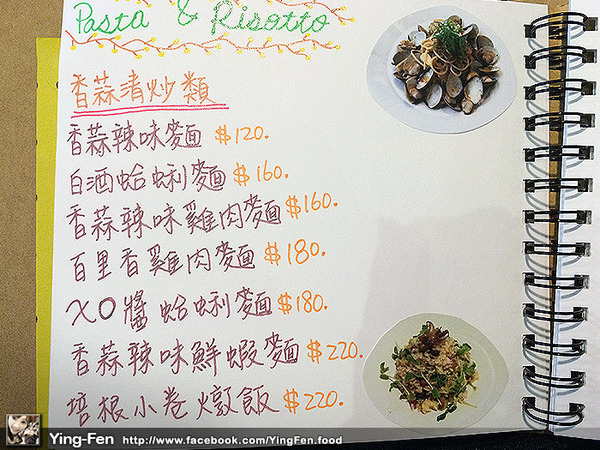 Pasta & Risotto
香蒜清炒類
香蒜辣味麵 $120.
白酒蛤蜊麵 $160.
香蒜辣味雞肉麵 $160.
百里香雞肉麵 $180.
XO醬蛤蜊麵 $180.
香蒜辣味鮮蝦麵 $220.
培根小卷燉飯 $220.
Ying-Fen http://www.facebook.com/YingFen.food